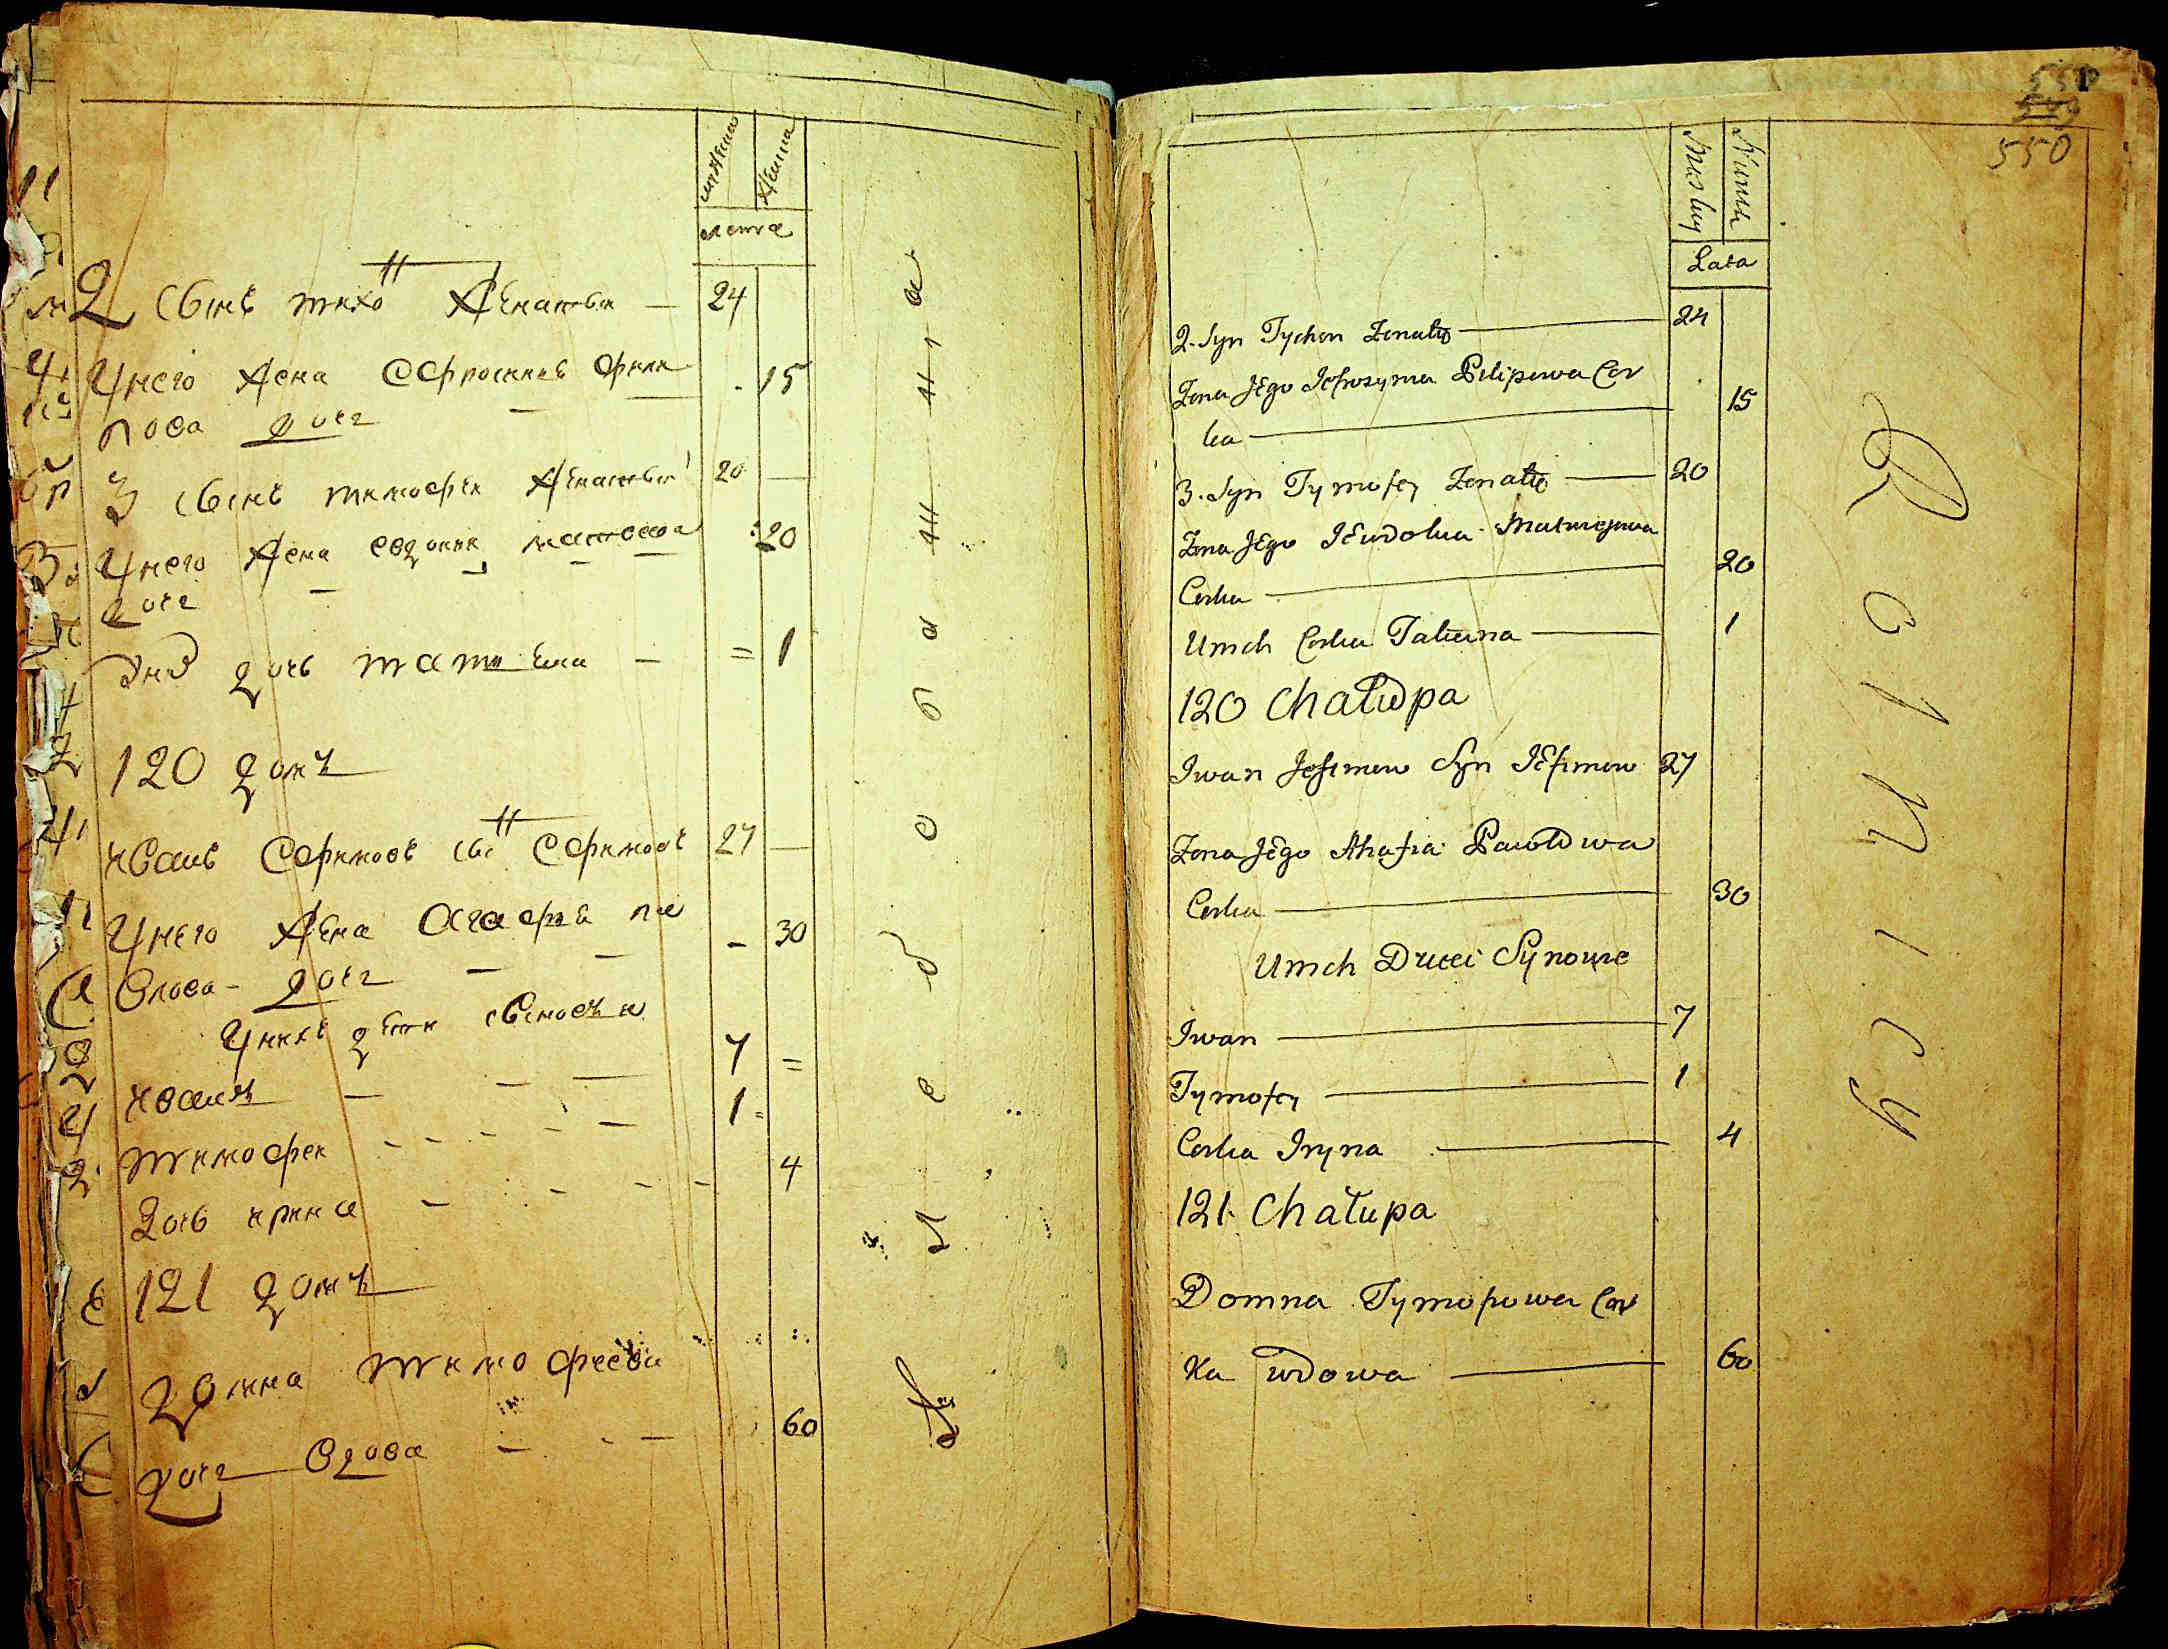 мужска
женска
лета
2 сынъ тихо н женатый — 24
унего жена ефросиния фили 15
пова дочь
3 сынъ тимофей женатый 20 —
унего жена евдокия матвеева 20
дочь
у них дочь татияна — = 1
120 домъ
иванъ ефимовъ сы н ефимовъ 27 —
унего жена агафия па - 30
влова - дочь
унихъ дети сыновья
иванъ 7 =
тимофей 1 =
дочь ирина 4
121 домъ
домна тимофеева
дочь вдова 60
550
Męskey
Żeńska
Lata
2. Syn Tychon Żonaty 24
Żona Jego Jefrozyma Pilipowa Cor 15
ka
3. Syn Tymofey Żonaty 20
Żona Jego Jewdokia Matwiejowa 20
Corka
Unich Corka Tatiana 1
120 Chałupa
Iwan Jefimow Syn Jefimow 27
Żona Jego Ahafia Pawłowa
Corka 30
Unich Dzieci Synowie
Iwan 7
Tymofey 1
Corka Iryna 4
121 Chałupa
Domna Tymofiowa Cor
ka wdowa 60
Rolnicy